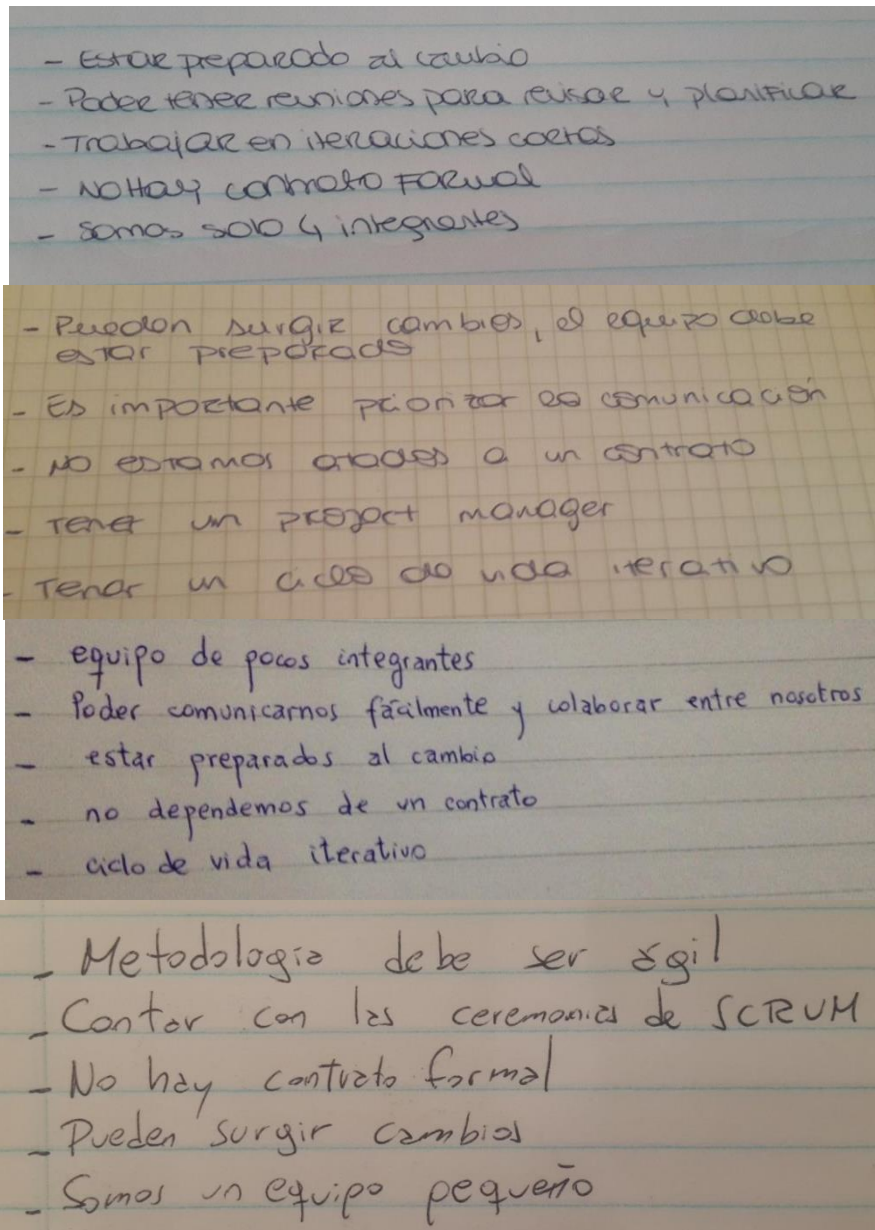 - Estar preparado al cambio
- Poder tener reuniones para revisar y planificar
- Trabajar en iteraciones cortas
- No Hay contrato Formal
- Somos solo 4 integrantes
- Pueden surgir cambios, el equipo debe
estar preparado
- Es importante priorizar la comunicación
- No estamos atados a un contrato
- Tener un project manager
- Tener un ciclo de vida iterativo
- equipo de pocos integrantes
- Poder comunicarnos fácilmente y colaborar entre nosotros
- estar preparados al cambio
- no dependemos de un contrato
- ciclo de vida iterativo
- Metodología debe ser ágil
- Contar con las ceremonias de SCRUM
- No hay contrato formal
- Pueden surgir cambios
- Somos un equipo pequeño